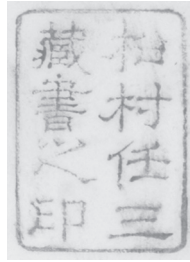 松村任三
藏書之印